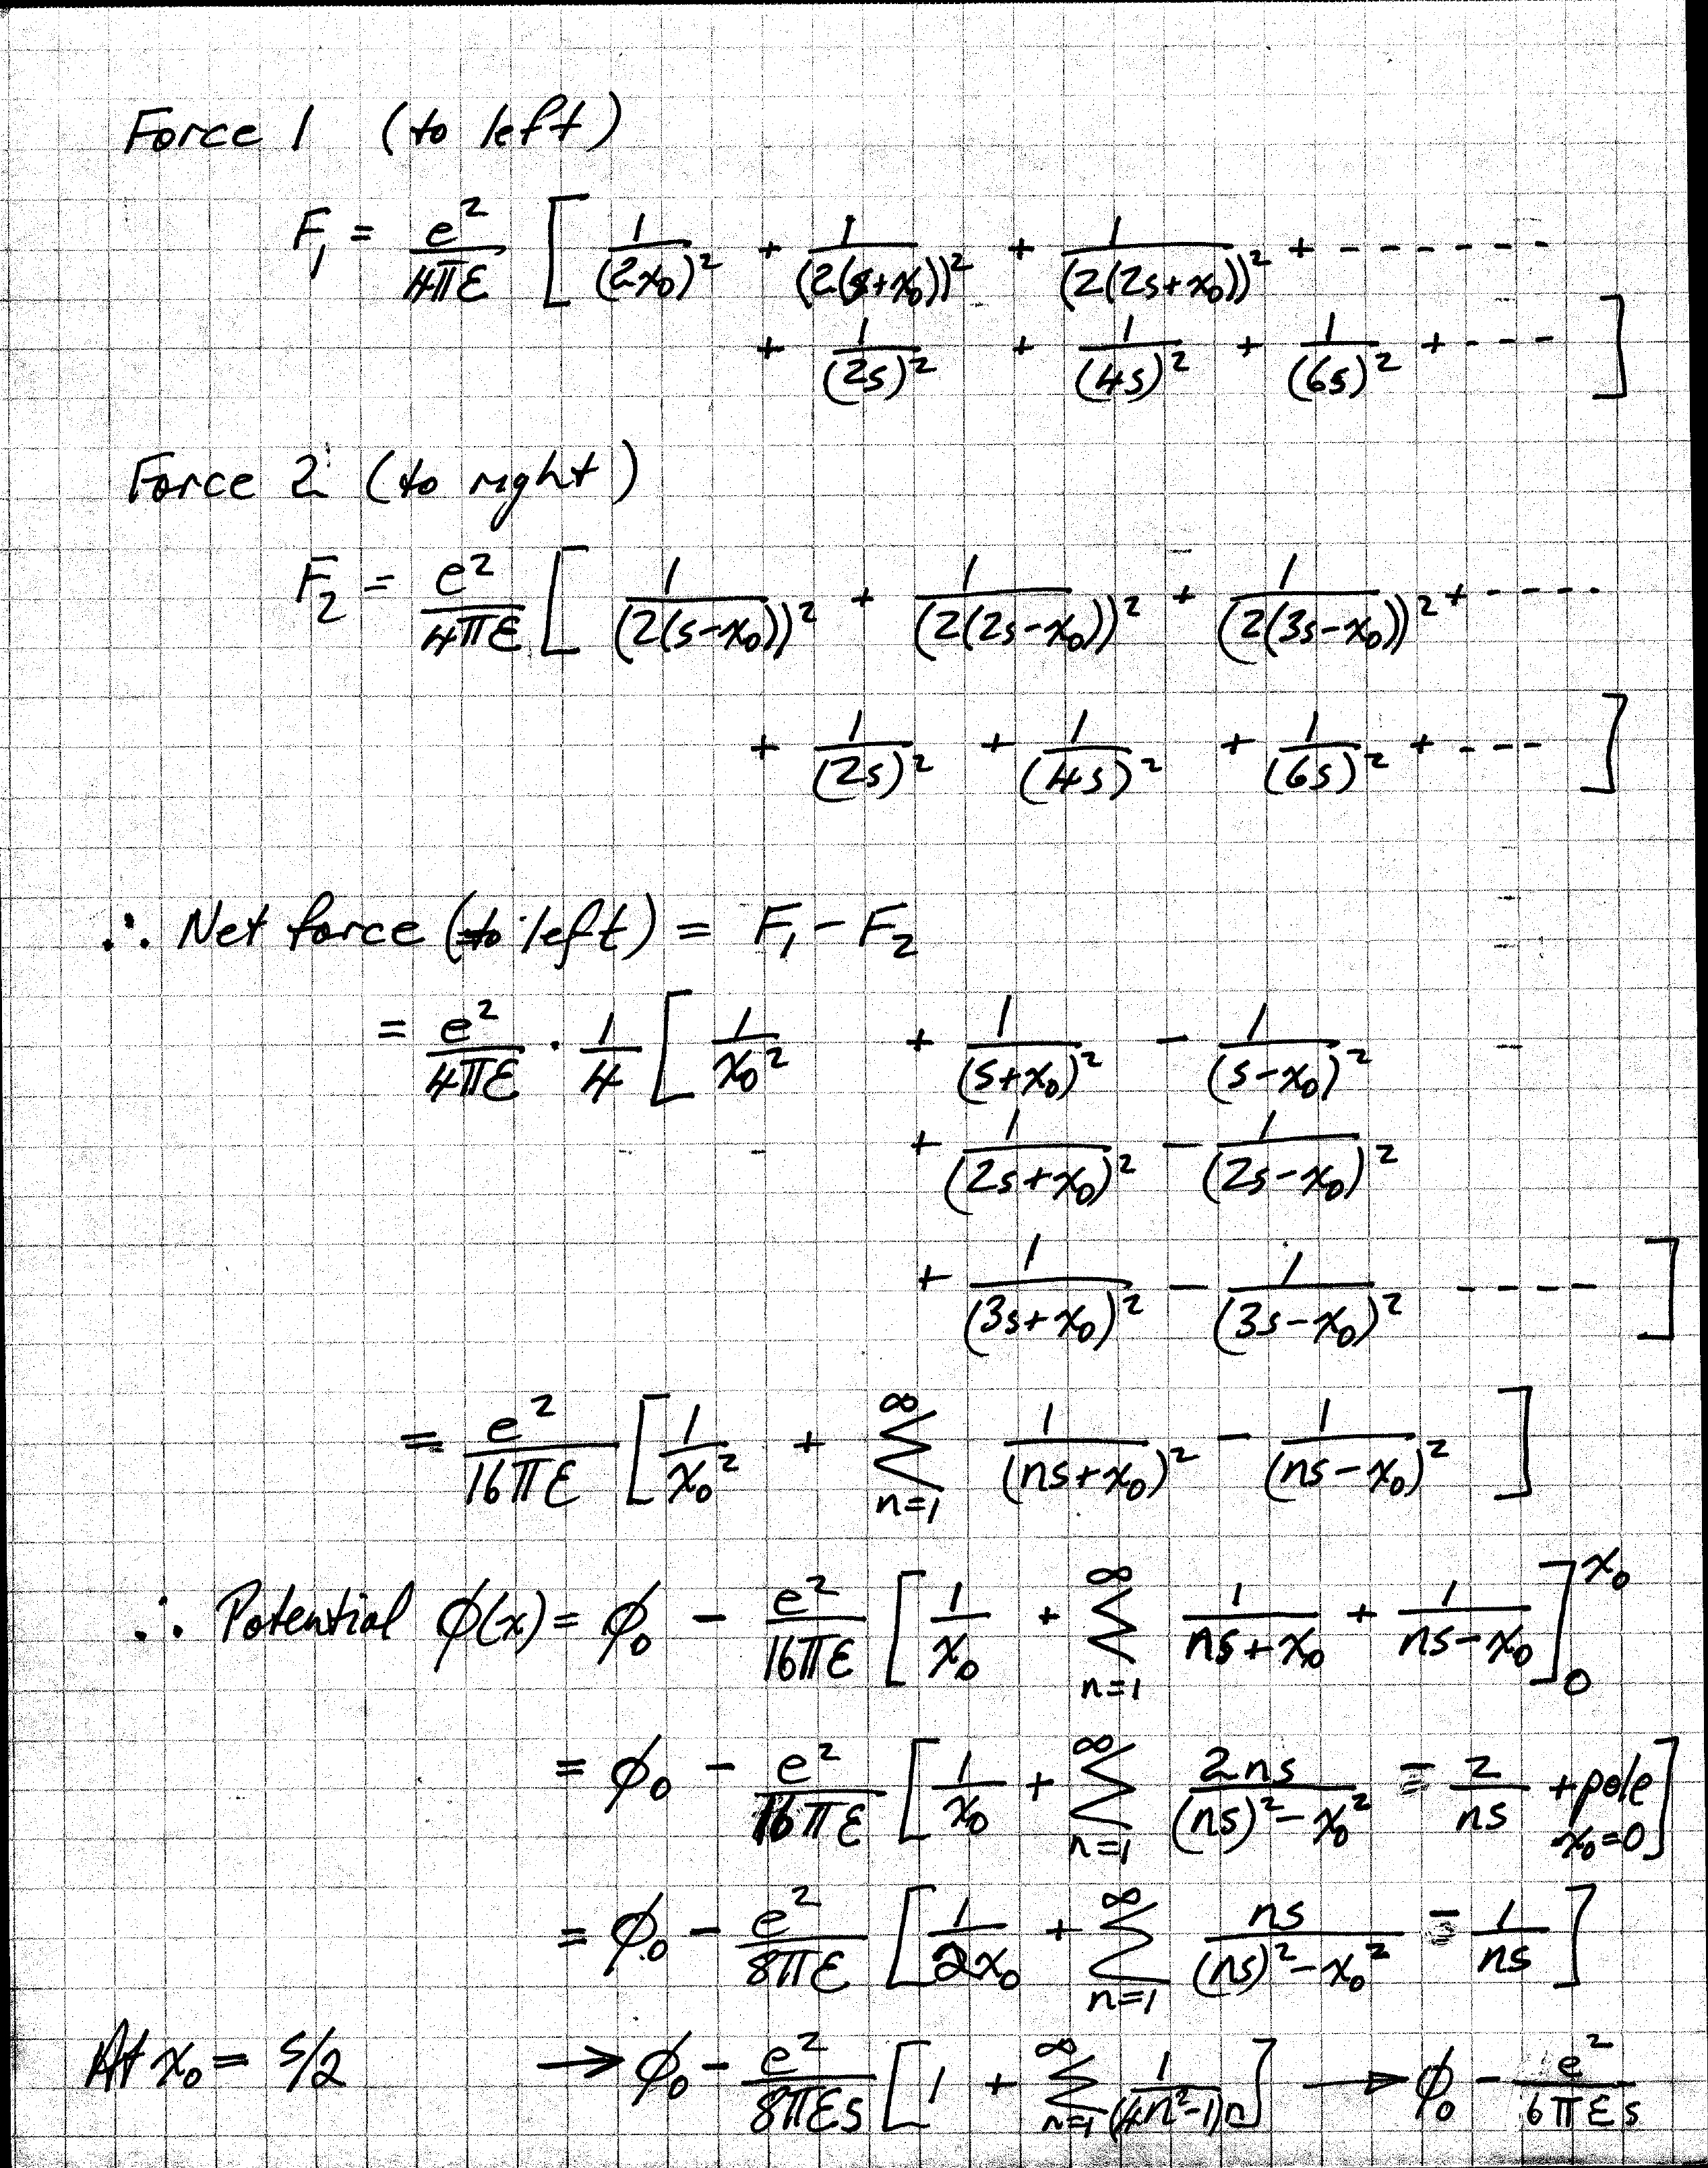 Force 1 (to left)
F₁ = e²/4πε [ 1/(2x₀)² + 1/(2(s+x₀))² + 1/(2(2s+x₀))² + - - - - - - -
+ 1/(2s)² + 1/(4s)² + 1/(6s)² + - - - - ]
Force 2 (to right)
F₂ = e²/4πε [ 1/(2(s-x₀))² + 1/(2(2s-x₀))² + 1/(2(3s-x₀))² + - - - - -
+ 1/(2s)² + 1/(4s)² + 1/(6s)² + - - - ]
∴ Net force (to left) = F₁ - F₂
= e²/4πε · 1/4 [ 1/x₀² + 1/(s+x₀)² - 1/(s-x₀)²
+ 1/(2s+x₀)² - 1/(2s-x₀)²
+ 1/(3s+x₀)² - 1/(3s-x₀)² - - - - ]
= e²/16πε [ 1/x₀² + ∑_{n=1}^{∞} 1/(ns+x₀)² - 1/(ns-x₀)² ]
∴ Potential ϕ(x) = ϕ₀ - e²/16πε [ 1/x₀ + ∑_{n=1}^{∞} 1/(ns+x₀) + 1/(ns-x₀) ]₀^{x₀}
= ϕ₀ - e²/16πε [ 1/x₀ + ∑_{n=1}^{∞} 2ns/((ns)²-x₀²) - 2/ns + pole x₀=0 ]
= ϕ₀ - e²/8πε [ 1/2x₀ + ∑_{n=1}^{∞} ns/((ns)²-x₀²) - 1/ns ]
At x₀ = s/2 → ϕ₀ - e²/8πεs [ 1 + ∑_{n=1}^{∞} 1/(4n²-1)n ] → ϕ₀ - e²/6πεs